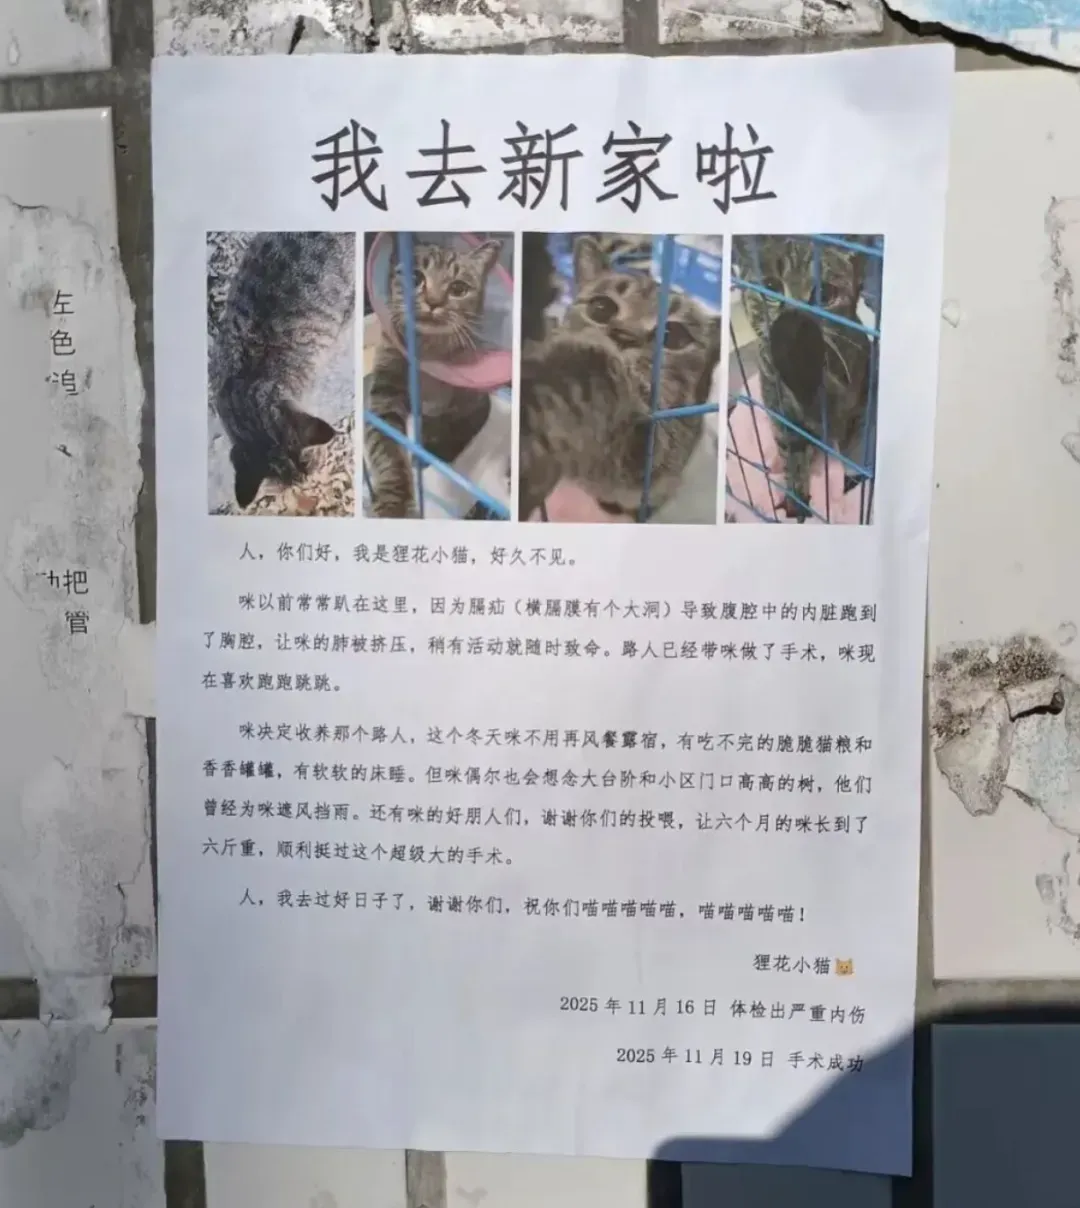 我去新家啦
人，你们好，我是狸花小猫，好久不见。
咪以前常常趴在这里，因为膈疝（横膈膜有个大洞）导致腹腔中的内脏跑到
了胸腔，让咪的肺被挤压，稍有活动就随时致命。路人已经带咪做了手术，咪现
在喜欢跑跑跳跳。
咪决定收养那个路人，这个冬天咪不用再风餐露宿，有吃不完的脆脆猫粮和
香香罐罐，有软软的床睡。但咪偶尔也会想念大台阶和小区门口高高的树，他们
曾经为咪遮风挡雨。还有咪的好朋人们，谢谢你们的投喂，让六个月的咪长到了
六斤重，顺利挺过这个超级大的手术。
人，我去过好日子了，谢谢你们，祝你们喵喵喵喵喵，喵喵喵喵喵！
狸花小猫🐱
2025年11月16日 体检出严重内伤
2025年11月19日 手术成功
左
色
追
把
管